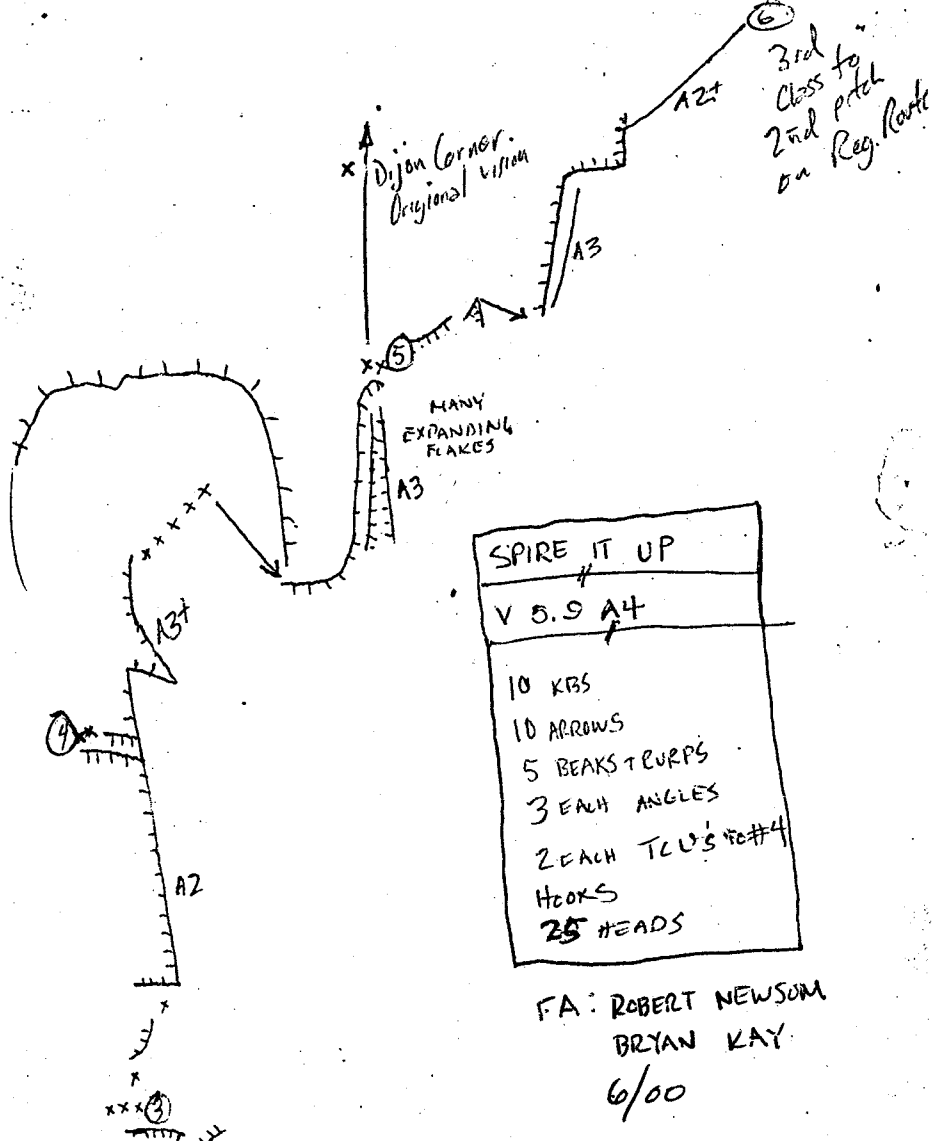 6
3rd
Class to
2nd pitch
on Reg. Route
A2+
Dijon Corner.
Origional vision
A3
5
MANY
EXPANDING
FLAKES
A3
A3+
4
A2
3
SPIRE IT UP
V 5.9 A4
10 KBS
10 ARROWS
5 BEAKS + RURPS
3 EACH ANGLES
2 EACH TCU'S to #4
HOOKS
25 HEADS
FA: ROBERT NEWSOM
BRYAN KAY
6/00